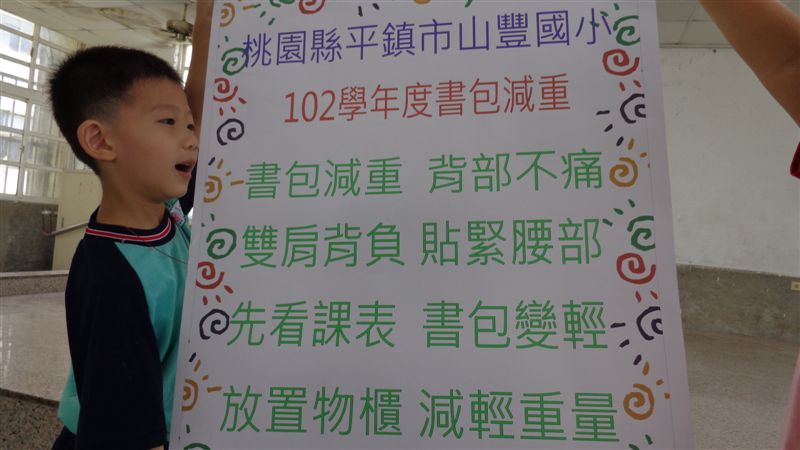 桃園縣平鎮市山豐國小
102學年度書包減重
書包減重 背部不痛
雙肩背負 貼緊腰部
先看課表 書包變輕
放置物櫃 減輕重量